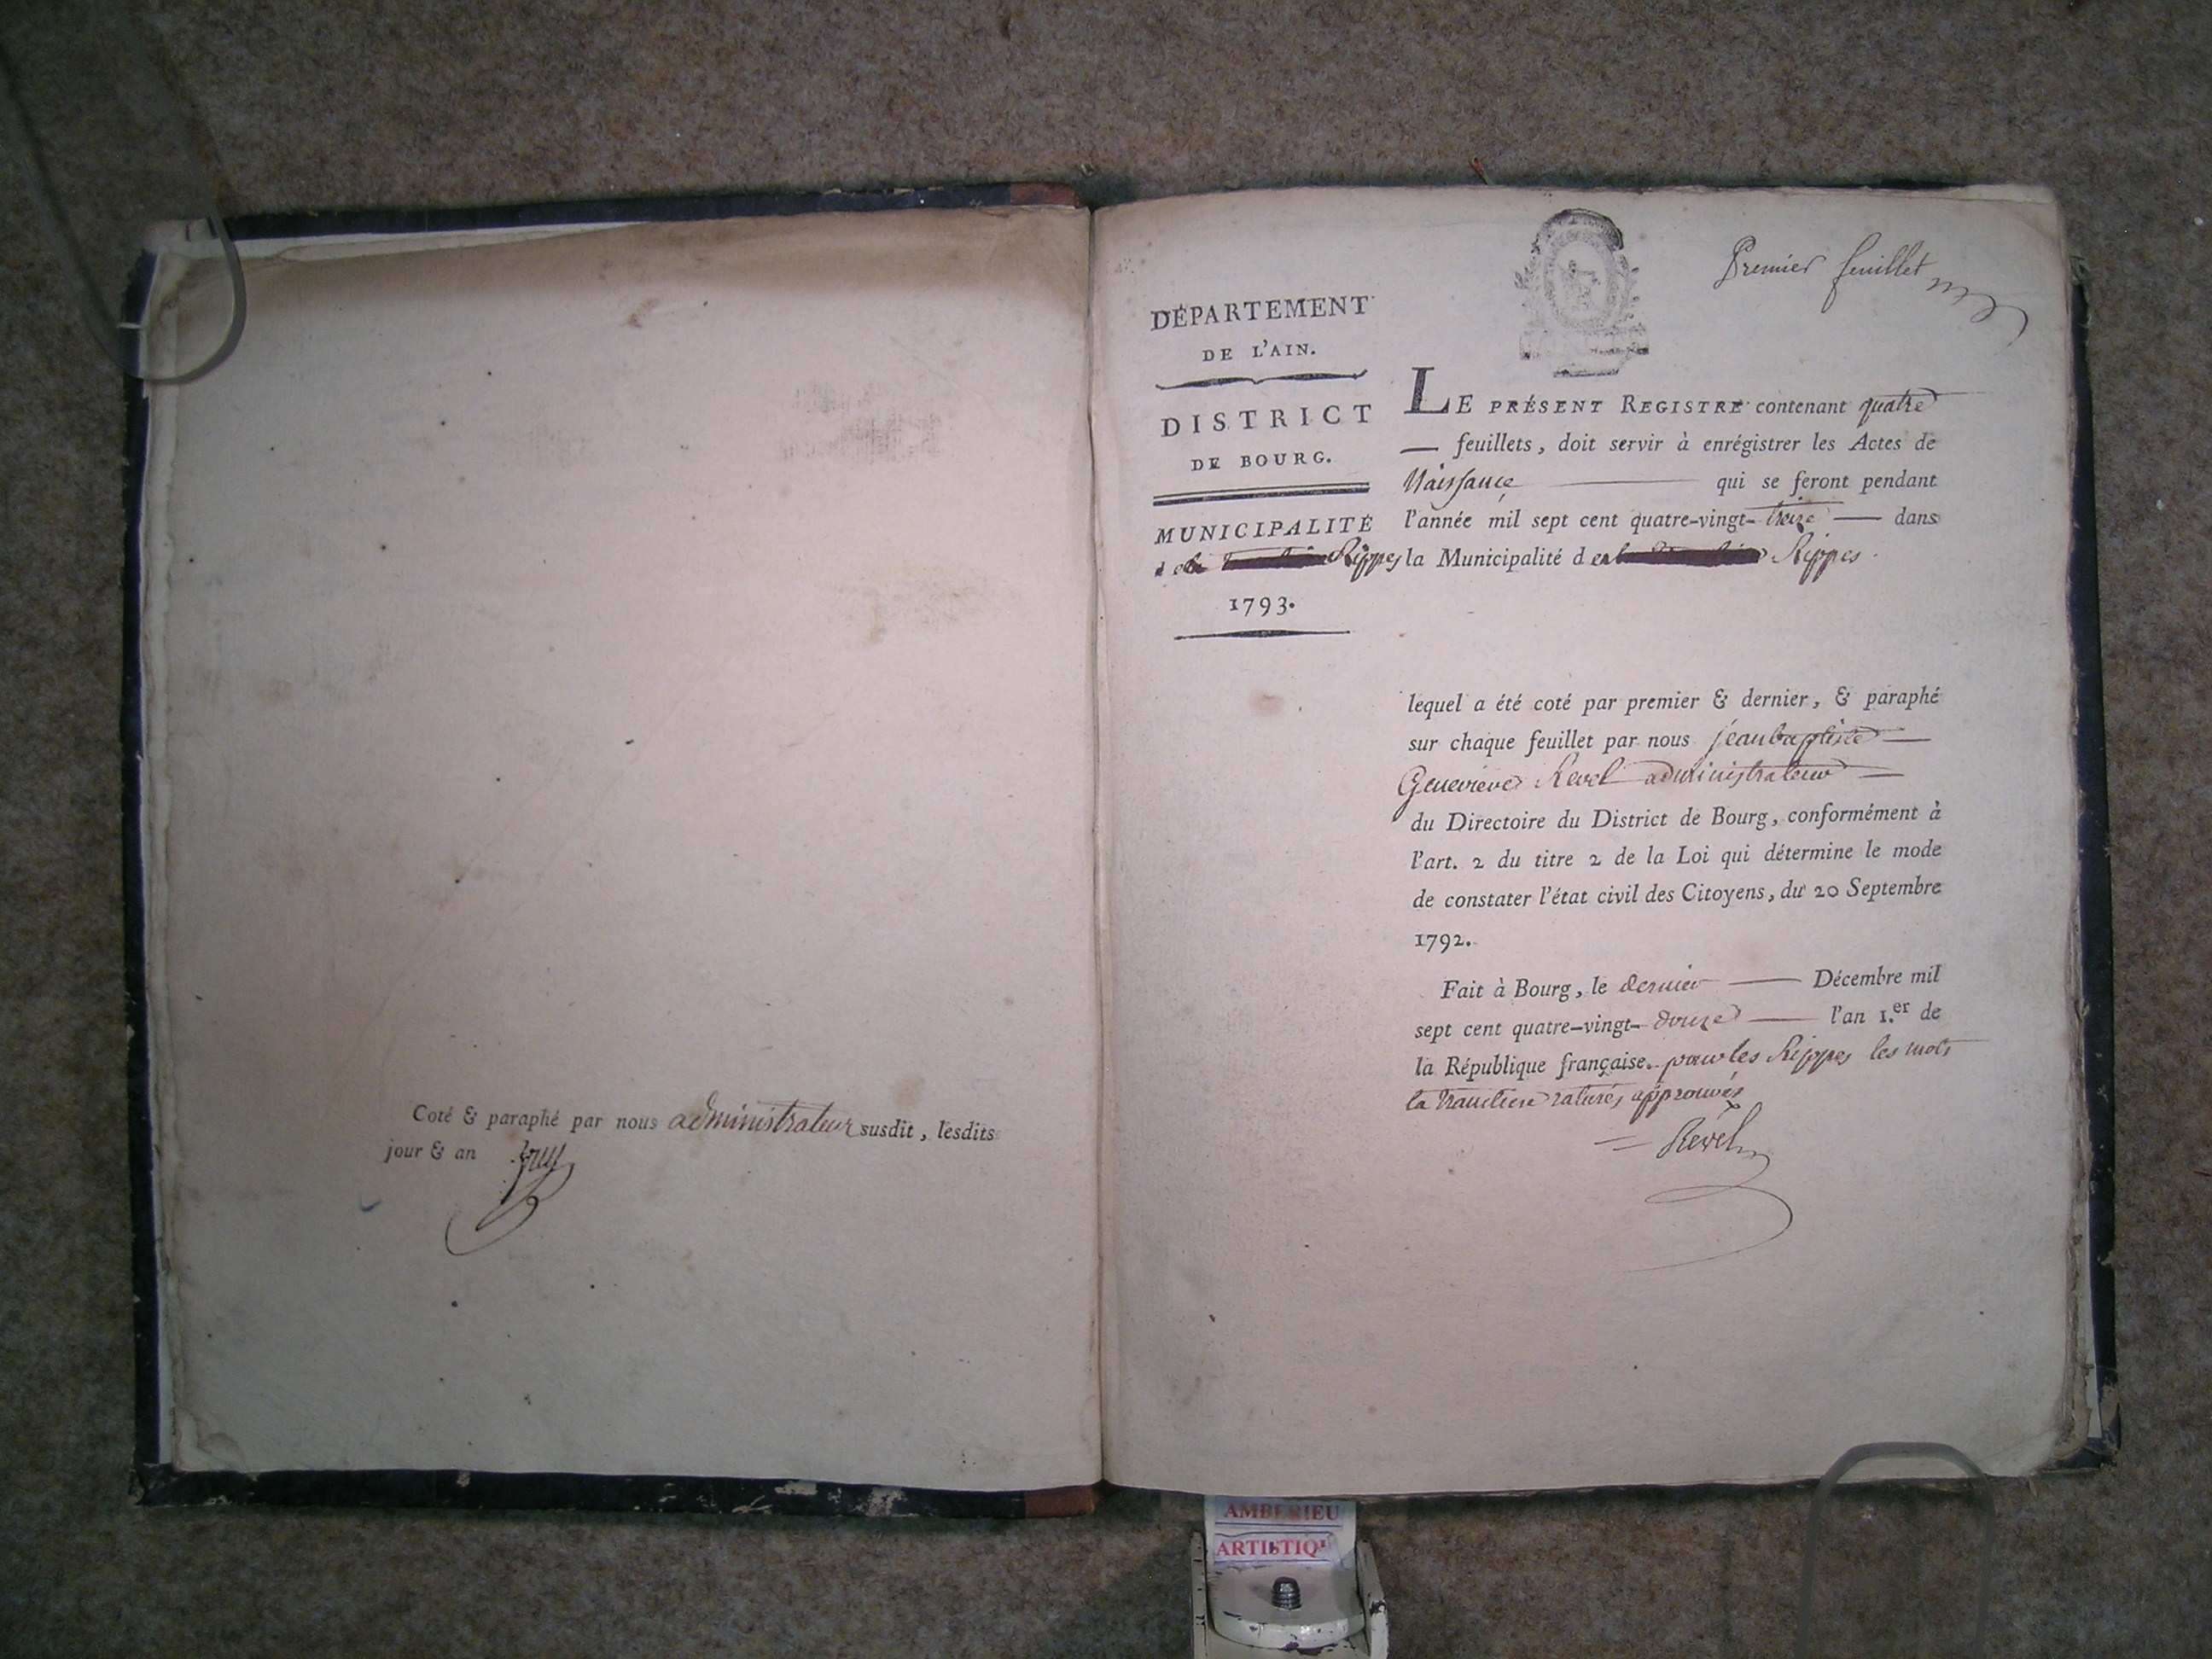 Coté & paraphé par nous administrateur susdit, lesdits
jour & an
Premier feuillet
DÉPARTEMENT
DE L'AIN.
DISTRICT
DE BOURG.
MUNICIPALITÉ
Rippes
1793.
LE PRÉSENT REGISTRE contenant quatre
— feuillets, doit servir à enrégistrer les Actes de
Naissance — qui se feront pendant
l'année mil sept cent quatre-vingt-treize — dans
la Municipalité d Rippes.
lequel a été coté par premier & dernier, & paraphé
sur chaque feuillet par nous jean baptiste —
Genevieve Revel administrateur —
du Directoire du District de Bourg, conformément à
l'art. 2 du titre 2 de la Loi qui détermine le mode
de constater l'état civil des Citoyens, du 20 Septembre
1792.
Fait à Bourg, le dernier — Décembre mil
sept cent quatre-vingt-douze — l'an 1.er de
la République française. pour les Rippes les mots
la raturés approuvés
Revel
AMBERIEU
ARTISTIQ